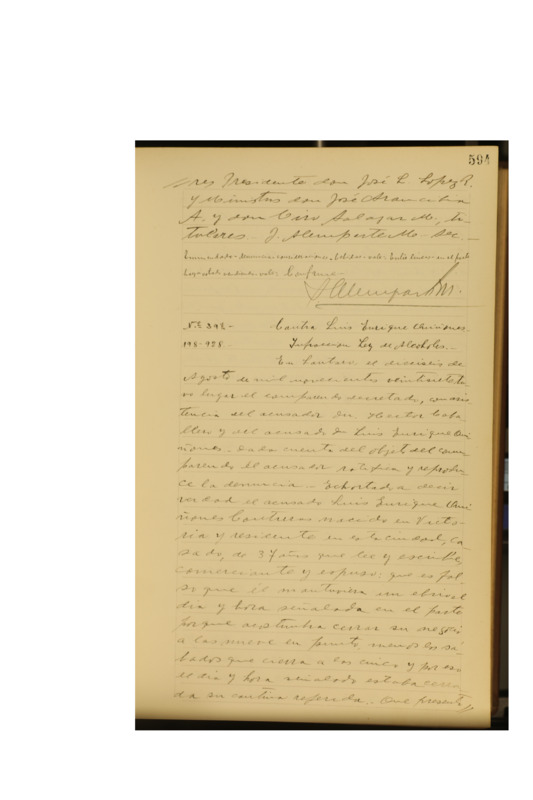 594
res Presidente don José L. Lopez R.
y Ministros don José Arancibia
A. y don Ciro Salazar M., ti-
tulares. J. Alemparte M. Sec.
Enmendado
Conforme.
J Alemparte M.
N.E 392- Contra Luis Enrique Quiñones.
198-928. Infraccion Ley de Alcoholes.-
En Lautaro, a dieciseis de
Agosto de mil novecientos veintisiete tu-
vo lugar el comparendo decretado, con asis-
tencia del acusador Dn. Hector Caba-
llero y del acusado Dn Luis Enrique Qui
ñones. Dada cuenta del objeto del com-
parendo el acusador ratifica y reprodu-
ce la denuncia. Exhortado a decir
verdad el acusado Luis Enrique Qui
ñones Contreras nacido en Victo-
ria y residente en esta ciudad, ca-
sado, de 37 años que lee y escribe,
comerciante y expuso: que es fal-
so que él mantuviera un ebrio el
dia y hora señalada en el parte
porque acostumbra cerrar su negocio
a las nueve en punto, menos los sá-
bados que cierra a las cinco y por eso
el dia y hora señalado estaba cerra
da su cantina referida. Que presenta